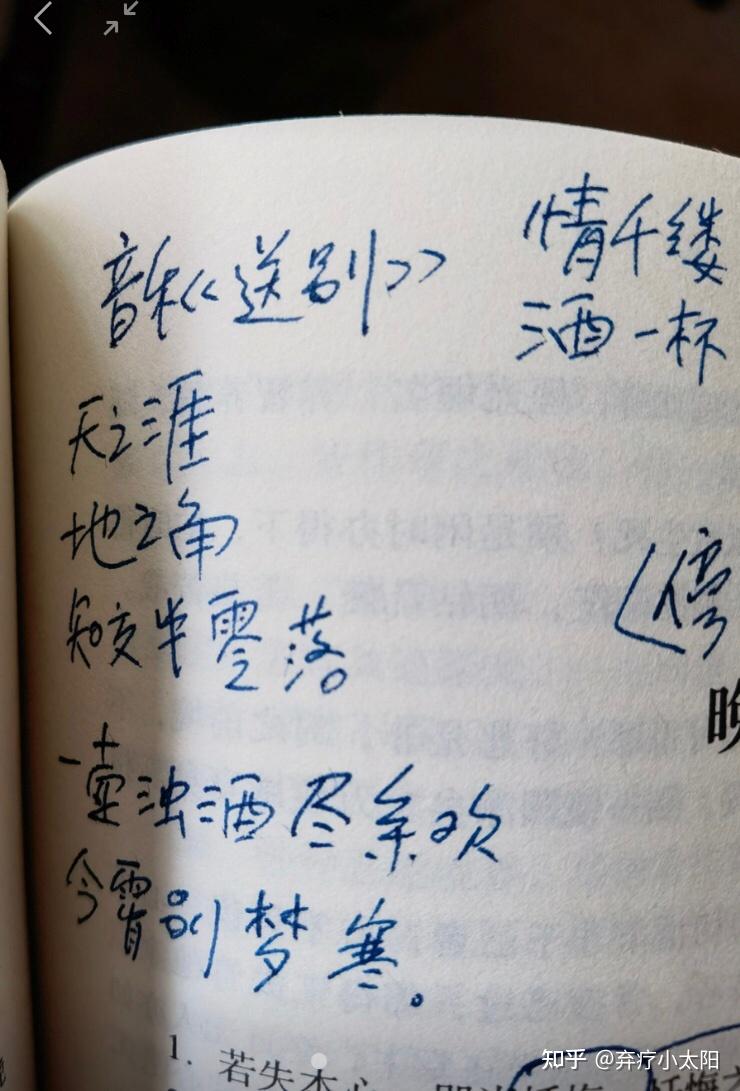 音乐《送别》
天之涯
地之角
知交半零落
一壶浊酒尽余欢
今霄别梦寒。
情千缕
酒一杯
晚
1. 若失本心,
知乎 @弃疗小太阳